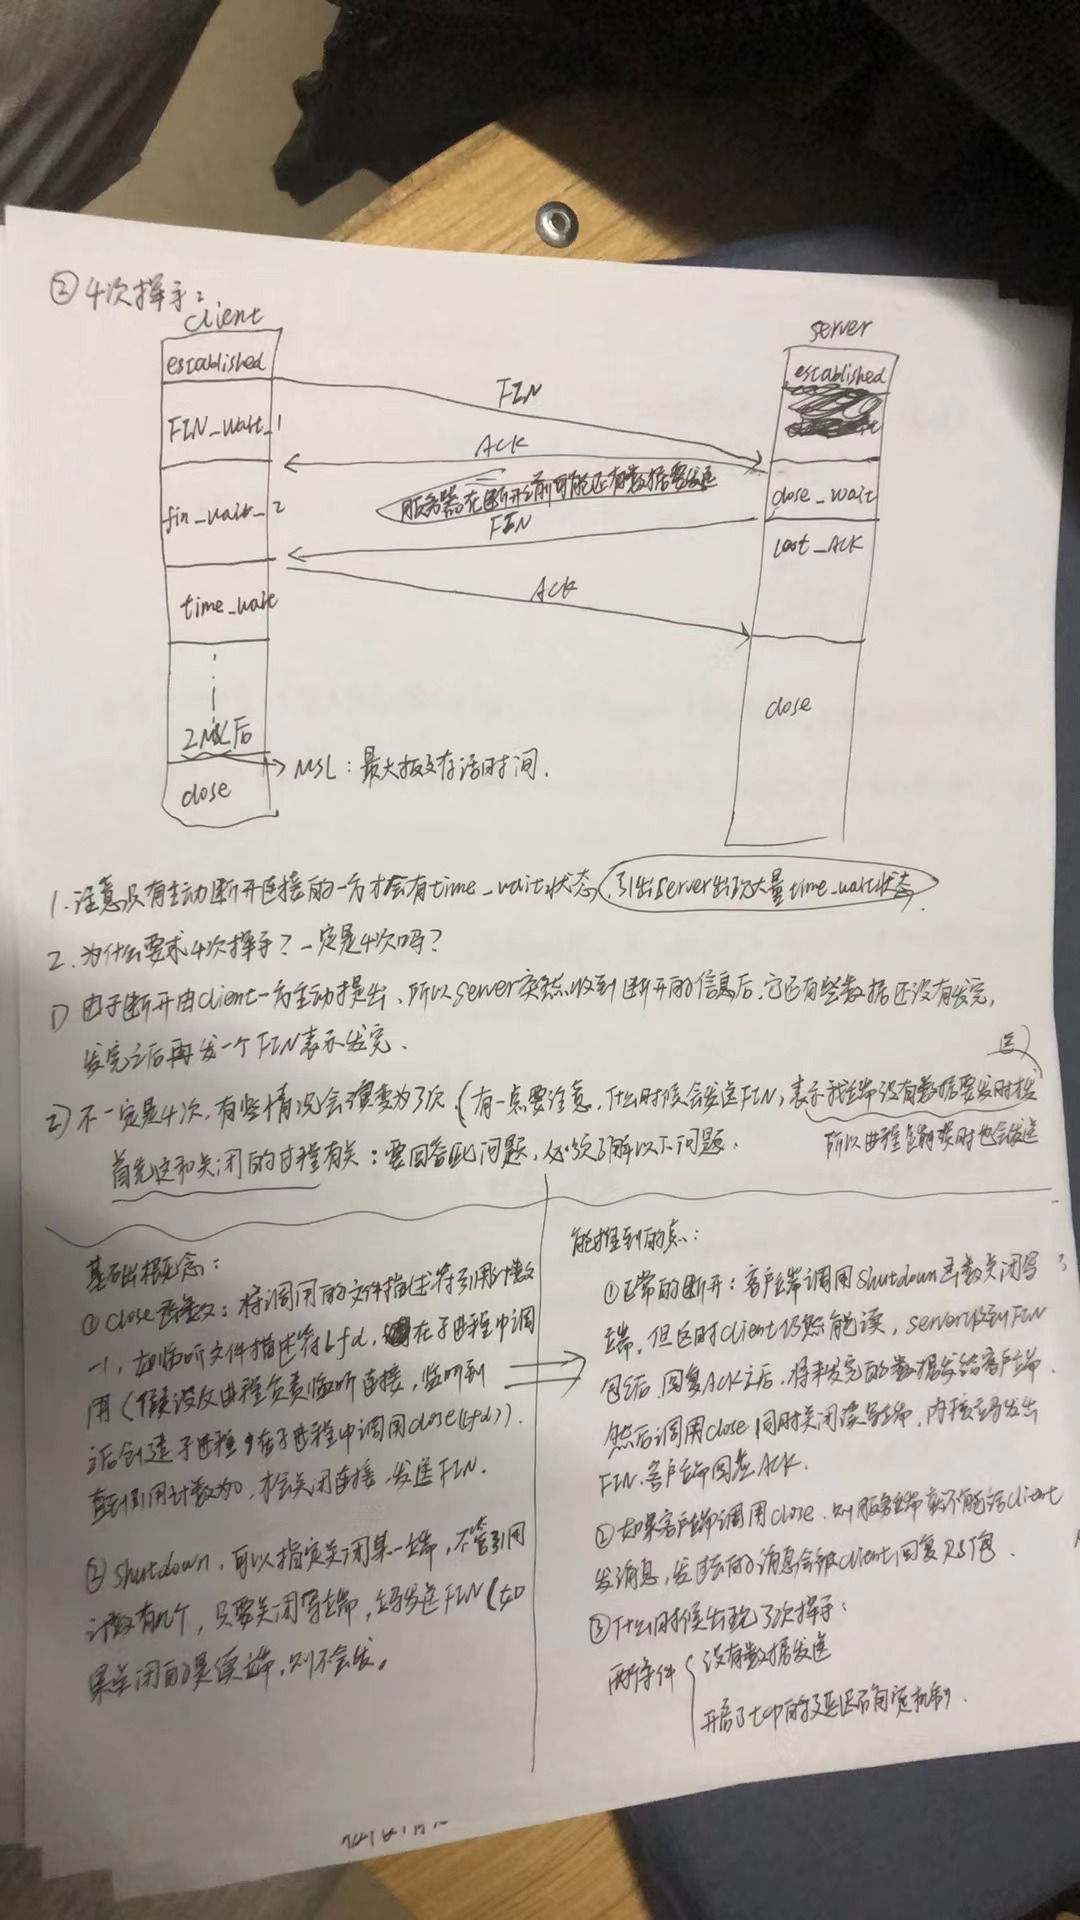 ② 4次挥手：
client
server
established
established
FIN
FIN_wait_1
ACK
服务器在断开之前可能还有数据需发送
close_wait
fin_wait_2
FIN
last_ACK
time_wait
ACK
close
2MSL后
MSL：最大报文存活时间.
close
1.注意只有主动断开连接的一方才会有time_wait状态，引出server出现大量time_wait状态.
2.为什么要求4次挥手？一定是4次吗？
1) 由于断开由client一方主动提出、所以server突然收到断开的信息后，它还有些数据还没有发完，
发完之后再发一个FIN表示发完.
2) 不一定是4次，有些情况会演变为3次（有一点要注意，什么时候会发送FIN，表示我端没有数据要发时发送）
所以进程崩溃时也会发送
首先这和关闭的过程有关：要回答此问题，必须了解以下问题.
基础概念：
① close函数：将调用的文件描述符引用计数
-1，如监听文件描述符lfd，在子进程中调
用（假设父进程负责监听连接，监听到
之后创建子进程，在子进程中调用close(lfd)）.
直到引用计数为0，才会关闭连接，发送FIN.
② shutdown，可以指定关闭某一端，不管引用
计数有几个，只要关闭写端，会发送FIN（如
果关闭的是读端，则不会发。
能推到的点：
①正常的断开：客户端调用shutdown函数关闭写
端，但此时client仍然能读，server收到FIN
包后，回复ACK之后，将未发完的数据发给客户端.
然后调用close同时关闭读写端，内核会发出
FIN.客户端回应ACK.
②如果客户端调用close，则服务端就不能给client
发消息，发过去的消息会被client回复RST包.
③什么时候出现3次挥手：
两条件
没有数据发送
开启了tcp的延迟确认机制.